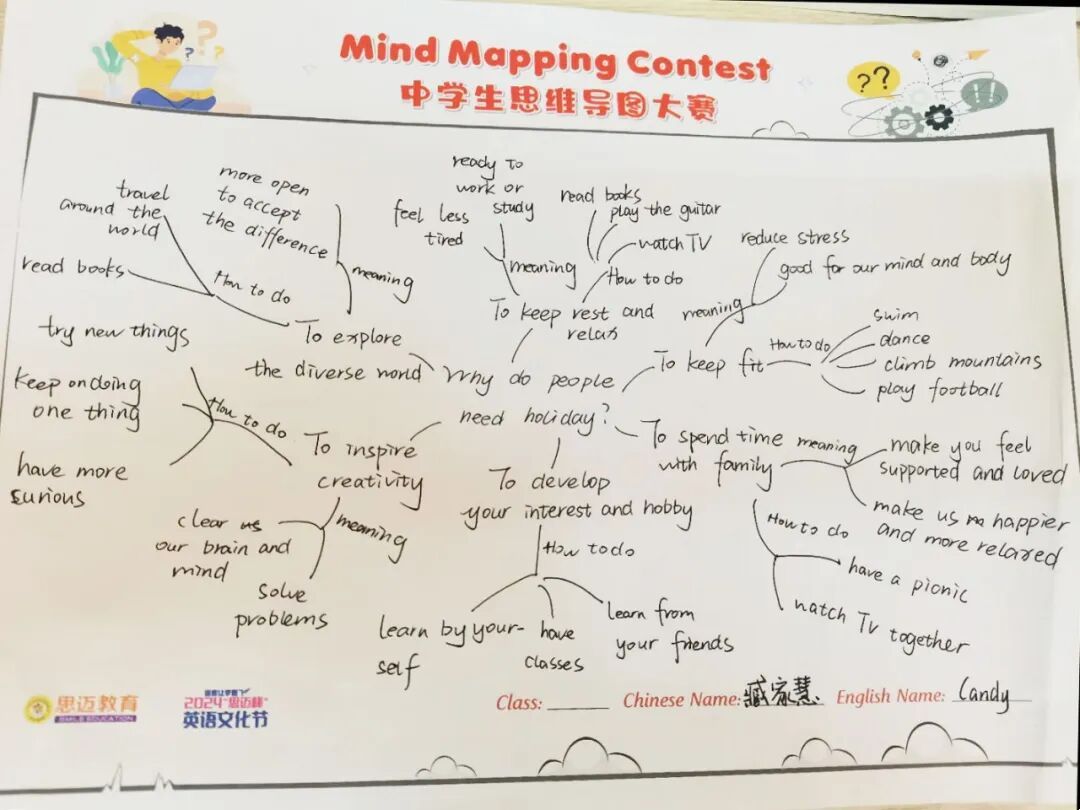 Mind Mapping Contest
中学生思维导图大赛
Why do people
need holiday?
To explore
the diverse world
How to do
travel
around the
world
read books
meaning
more open
to accept
the difference
To keep rest and
relax
meaning
ready to
work or
study
feel less
tired
How to do
read books
play the guitar
watch TV
To keep fit
meaning
reduce stress
good for our mind and body
How to do
swim
dance
climb mountains
play football
To spend time
with family
meaning
make you feel
supported and loved
make us happier
and more relaxed
How to do
have a picnic
watch TV together
To develop
your interest and hobby
How to do
learn by your-
self
have
classes
learn from
your friends
To inspire
creativity
How to do
try new things
keep on doing
one thing
have more
curious
meaning
clear
our brain and
mind
solve
problems
思迈教育
SMILE EDUCATION
2024"思迈杯"
英语文化节
Class:
Chinese Name: 臧家慧
English Name: Candy